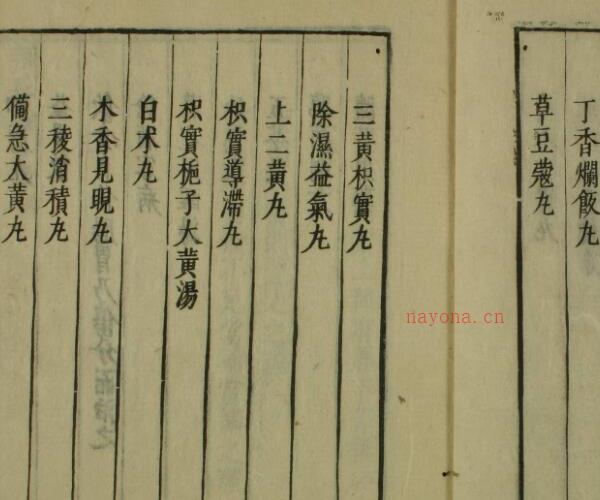 丁香爛飯丸
草豆蔻丸
三黃枳實丸
除濕益氣丸
上二黃丸
枳實導滯丸
枳實梔子大黃湯
白术丸
木香見晛丸
三稜消積丸
備急大黃丸
nayona.cn